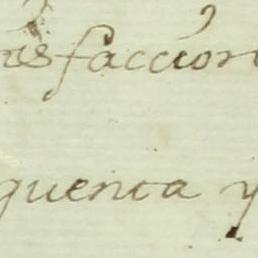 tisfaccion
quenta y